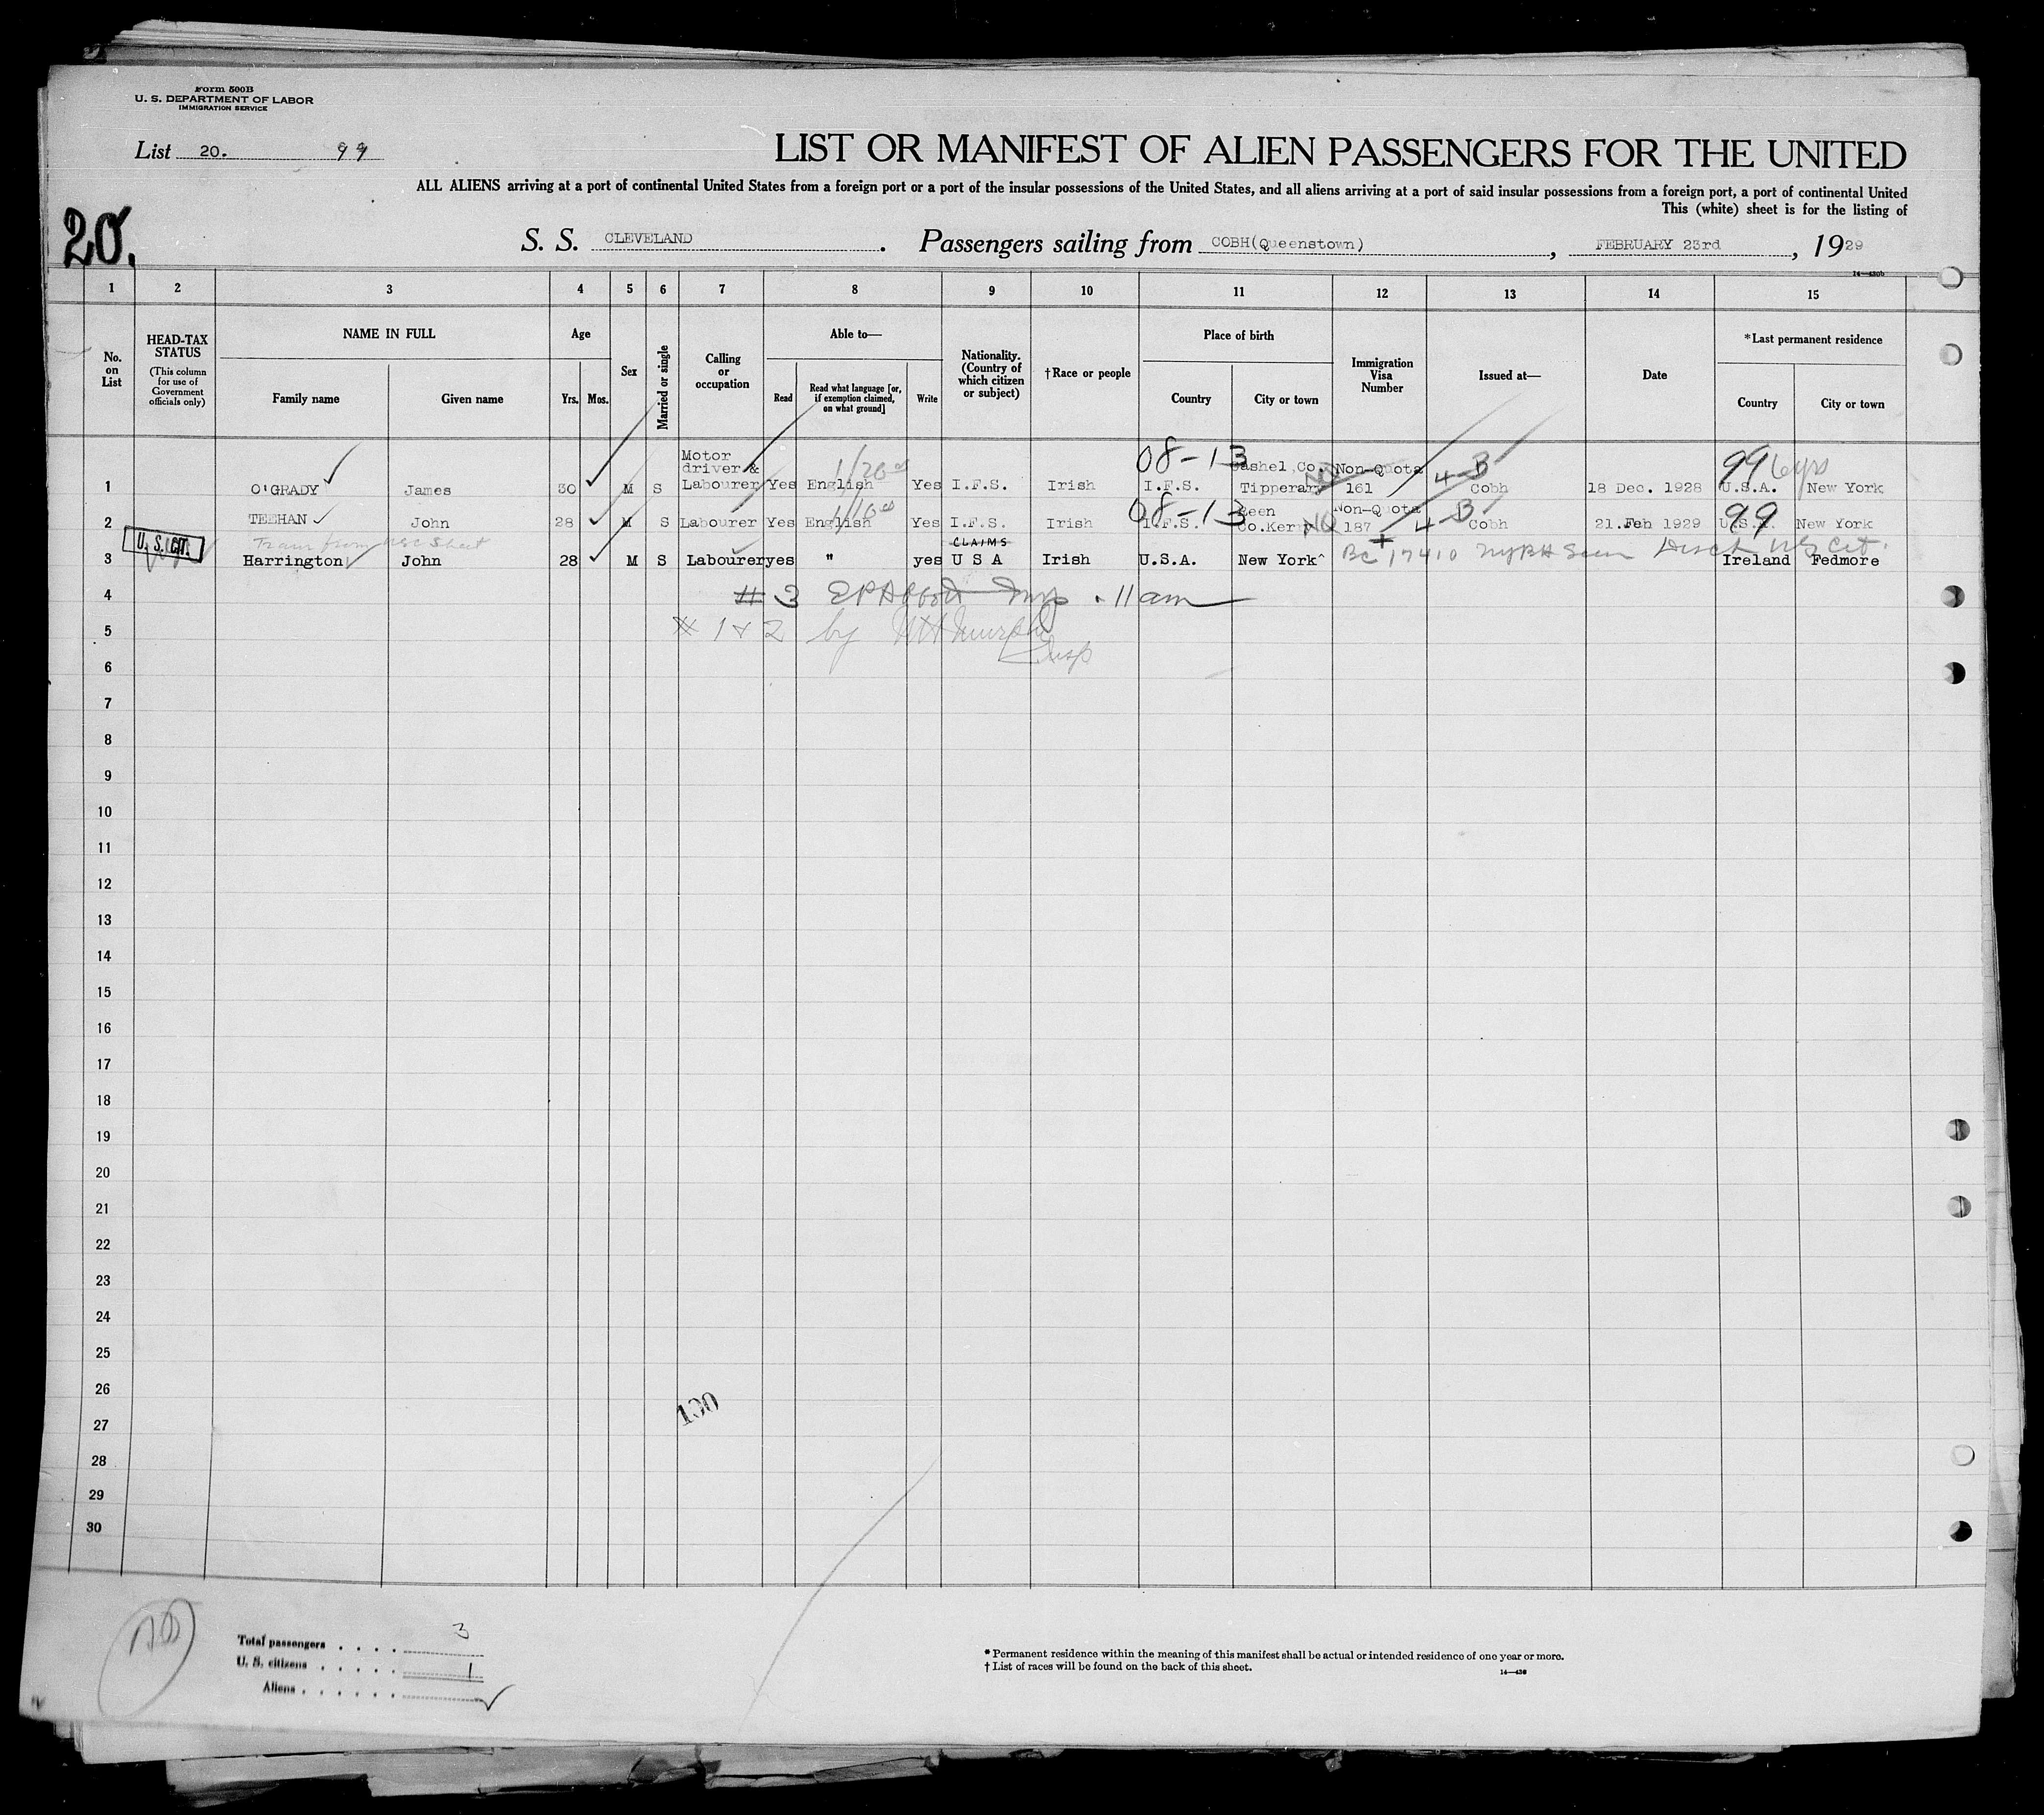 Form 500B
U. S. DEPARTMENT OF LABOR
IMMIGRATION SERVICE
List 20. 99
LIST OR MANIFEST OF ALIEN PASSENGERS FOR THE UNITED
ALL ALIENS arriving at a port of continental United States from a foreign port or a port of the insular possessions of the United States, and all aliens arriving at a port of said insular possessions from a foreign port, a port of continental United
This (white) sheet is for the listing of
20.
S. S. CLEVELAND. Passengers sailing from COBH(Queenstown), FEBRUARY 23rd, 1929
14—430b
1 2 3 4 5 6 7 8 9 10 11 12 13 14 15
No. on List
HEAD-TAX STATUS
(This column for use of Government officials only)
NAME IN FULL
Family name Given name
Age
Yrs. Mos.
Sex
Married or single
Calling or occupation
Able to—
Read
Read what language [or, if exemption claimed, on what ground]
Write
Nationality. (Country of which citizen or subject)
†Race or people
Place of birth
Country City or town
Immigration Visa Number
Issued at—
Date
*Last permanent residence
Country City or town
08-13 4-3 99 6yrs
1 O'GRADY James 30 M S Motor driver & Labourer Yes English Yes I.F.S. Irish I.F.S. Cashel,Co. Tipperary Non-Quota 161 Cobh 18 Dec. 1928 U.S.A. New York
08-13 4-3 99
2 TEEHAN John 28 M S Labourer Yes English Yes I.F.S. Irish I.F.S. Co.Kerry Non-Quota 187 Cobh 21.Feb 1929 U.S.A. New York
U. S. CIT.
Trans from USC Sheet
CLAIMS
3 Harrington John 28 M S Labourer yes " yes U S A Irish U.S.A. New York BC 17410 Ireland Fedmore
4 # 3 11 am
5 # 1 & 2 by Murphy
6 Insp
7
8
9
10
11
12
13
14
15
16
17
18
19
20
21
22
23
24
25
26
27
28
29
30
100
Total passengers . . . . 3
U. S. citizens . . . . . 1
Aliens . . . . . .
* Permanent residence within the meaning of this manifest shall be actual or intended residence of one year or more.
† List of races will be found on the back of this sheet.
14—430